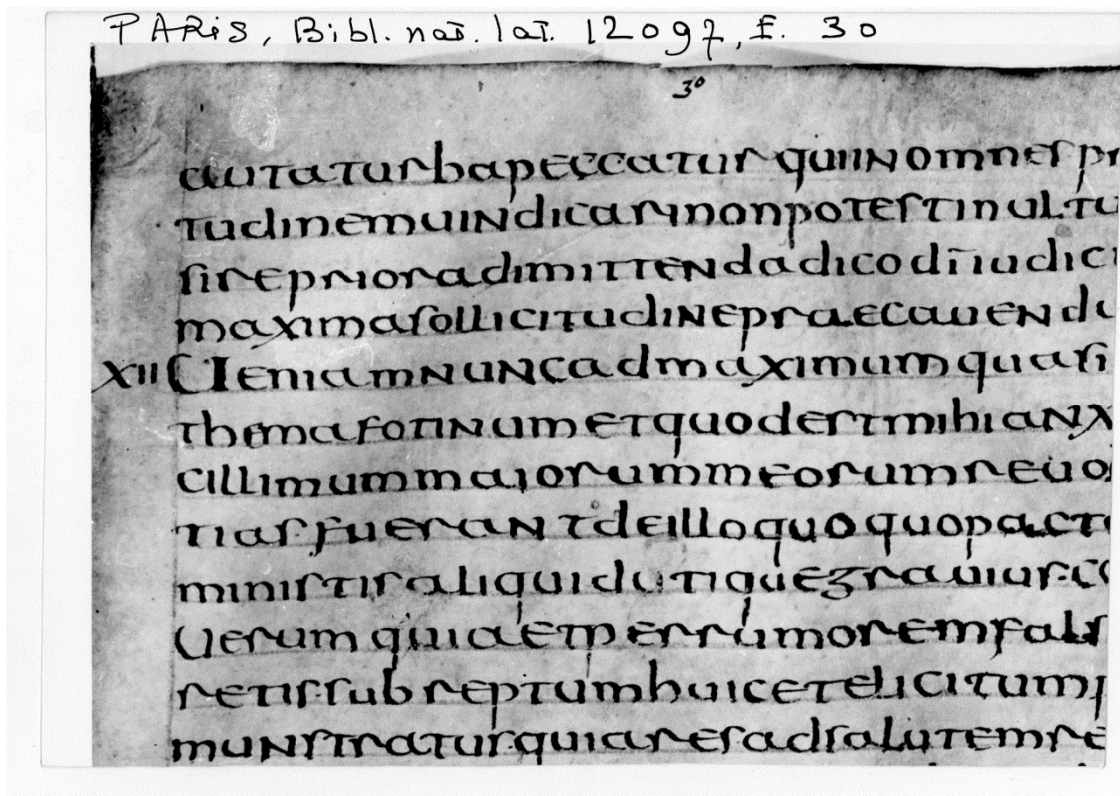 PARIS, Bibl. nat. lat. 12097, f. 30
30
autaturbapeccatur quiinomnes pr
tudinemuindicarinonpotestinultu
sirepriora dimittenda dico dī iudici
maximasollicitudinepraecauendu
XII Ueniamnuncad maximum quasi
themafotinum etquodestmihianx
cillimummaiorummeorumreuo
tias fuerant deilloquoquopacto
ministrisaliquidutiquegrauius co
Uerum quia etperrumoremfals
retis subreptumhuicetelicitum
munstratur quiaresadsalutemre